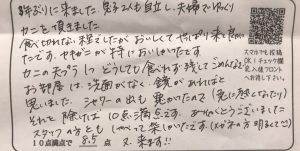 振りに来ました。男子2人も自立し、夫婦でゆっくり
カニを頂きました。
食べ切れない程でしたが おいしくて やっぱり来て良かっ
たです。ヤキガニが特においしかったです
カニの天プラ1つ どうしても食べれず残してごめんなさい
お部屋は、洗面がなく、鏡があればと
思いました。シャワーの出も 驚かたので (先に考えとなったり)
それと除けば 10点満点です。ありがとうございました
スタッフの方とも しゃべって楽しかったです。(メガネの方明るくて!!)
10点満点で 8.5 点 又、来ます!!
スマホで投稿
OK!チェック欄
記入後フロント
へお渡し下さい。